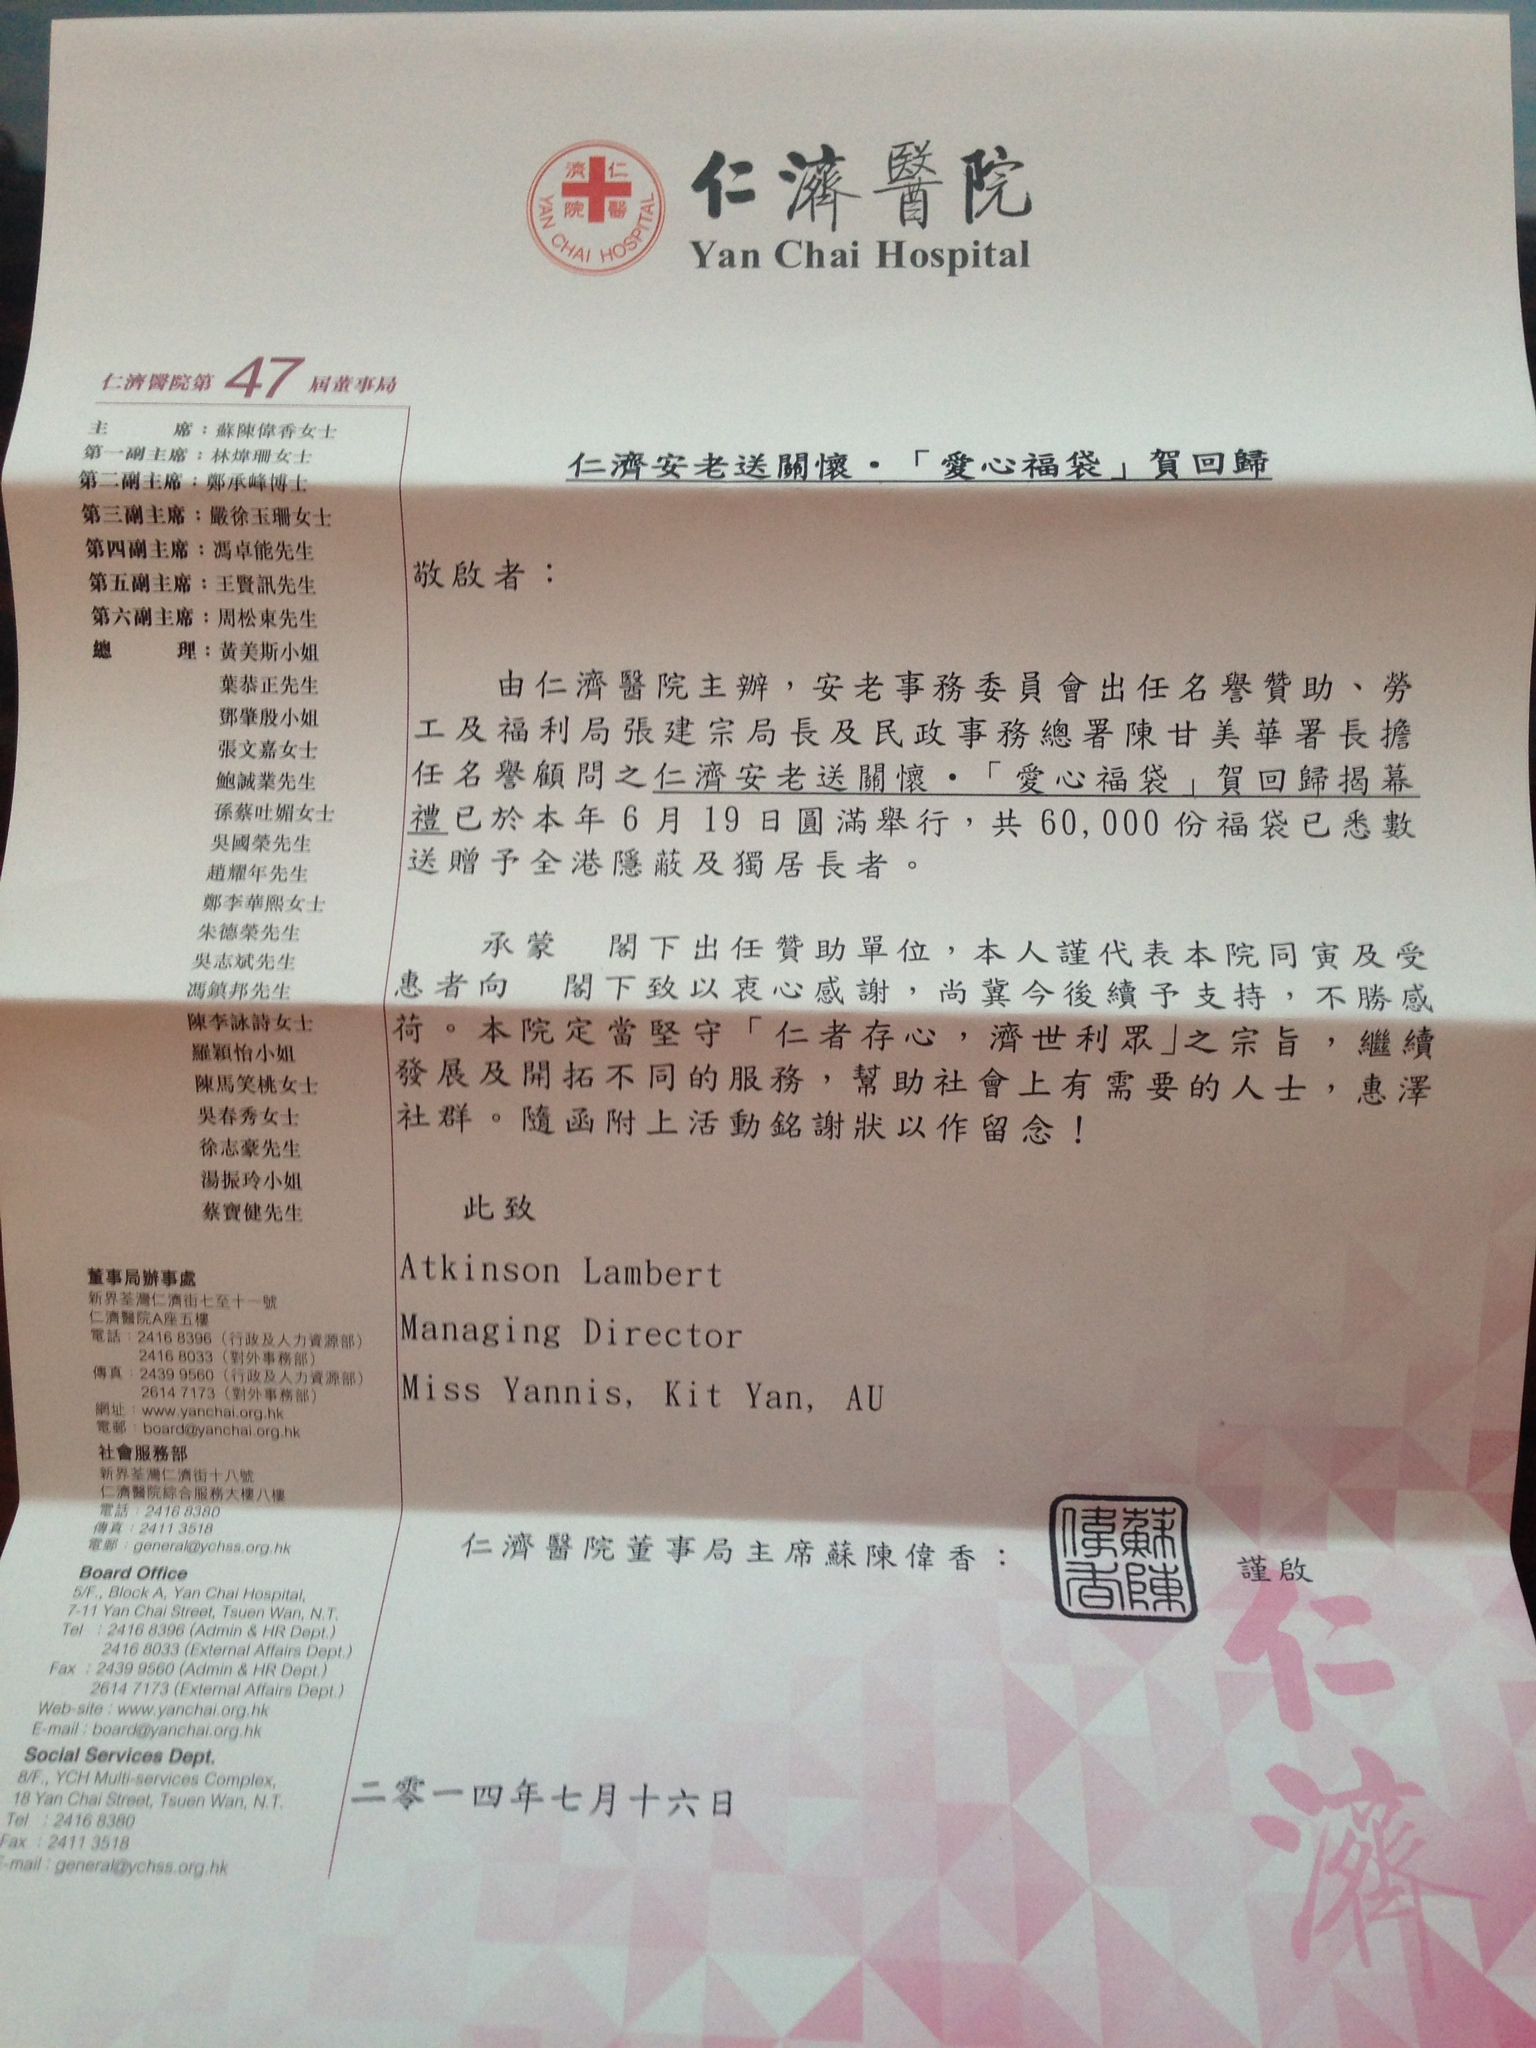 仁濟醫院
YAN CHAI HOSPITAL
仁濟醫院
Yan Chai Hospital
仁濟醫院第47屆董事局
主席：蘇陳偉香女士
第一副主席：林煒珊女士
第二副主席：鄭承峰博士
第三副主席：嚴徐玉珊女士
第四副主席：馮卓能先生
第五副主席：王賢訊先生
第六副主席：周松東先生
總理：黃美斯小姐
葉恭正先生
鄧肇殷小姐
張文嘉女士
鮑誠業先生
孫蔡吐媚女士
吳國榮先生
趙耀年先生
鄭李華熙女士
朱德榮先生
吳志斌先生
馮鎮邦先生
陳李詠詩女士
羅穎怡小姐
陳馬笑桃女士
吳春秀女士
徐志豪先生
湯振玲小姐
蔡寶健先生
董事局辦事處
新界荃灣仁濟街七至十一號
仁濟醫院A座五樓
電話：2416 8396（行政及人力資源部）
2416 8033（對外事務部）
傳真：2439 9560（行政及人力資源部）
2614 7173（對外事務部）
網址：www.yanchai.org.hk
電郵：board@yanchai.org.hk
社會服務部
新界荃灣仁濟街十八號
仁濟醫院綜合服務大樓八樓
電話：2416 8380
傳真：2411 3518
電郵：general@ychss.org.hk
Board Office
5/F., Block A, Yan Chai Hospital,
7-11 Yan Chai Street, Tsuen Wan, N.T.
Tel : 2416 8396 (Admin & HR Dept.)
2416 8033 (External Affairs Dept.)
Fax : 2439 9560 (Admin & HR Dept.)
2614 7173 (External Affairs Dept.)
Web-site : www.yanchai.org.hk
E-mail : board@yanchai.org.hk
Social Services Dept.
8/F., YCH Multi-services Complex,
18 Yan Chai Street, Tsuen Wan, N.T.
Tel : 2416 8380
Fax : 2411 3518
E-mail : general@ychss.org.hk
仁濟安老送關懷・「愛心福袋」賀回歸
敬啟者：
由仁濟醫院主辦，安老事務委員會出任名譽贊助、勞
工及福利局張建宗局長及民政事務總署陳甘美華署長擔
任名譽顧問之仁濟安老送關懷・「愛心福袋」賀回歸揭幕
禮已於本年6月19日圓滿舉行，共60,000份福袋已悉數
送贈予全港隱蔽及獨居長者。
承蒙 閣下出任贊助單位，本人謹代表本院同寅及受
惠者向 閣下致以衷心感謝，尚冀今後續予支持，不勝感
荷。本院定當堅守「仁者存心，濟世利眾」之宗旨，繼續
發展及開拓不同的服務，幫助社會上有需要的人士，惠澤
社群。隨函附上活動銘謝狀以作留念！
此致
Atkinson Lambert
Managing Director
Miss Yannis, Kit Yan, AU
仁濟醫院董事局主席蘇陳偉香：
蘇陳偉香
謹啟
二零一四年七月十六日
仁濟